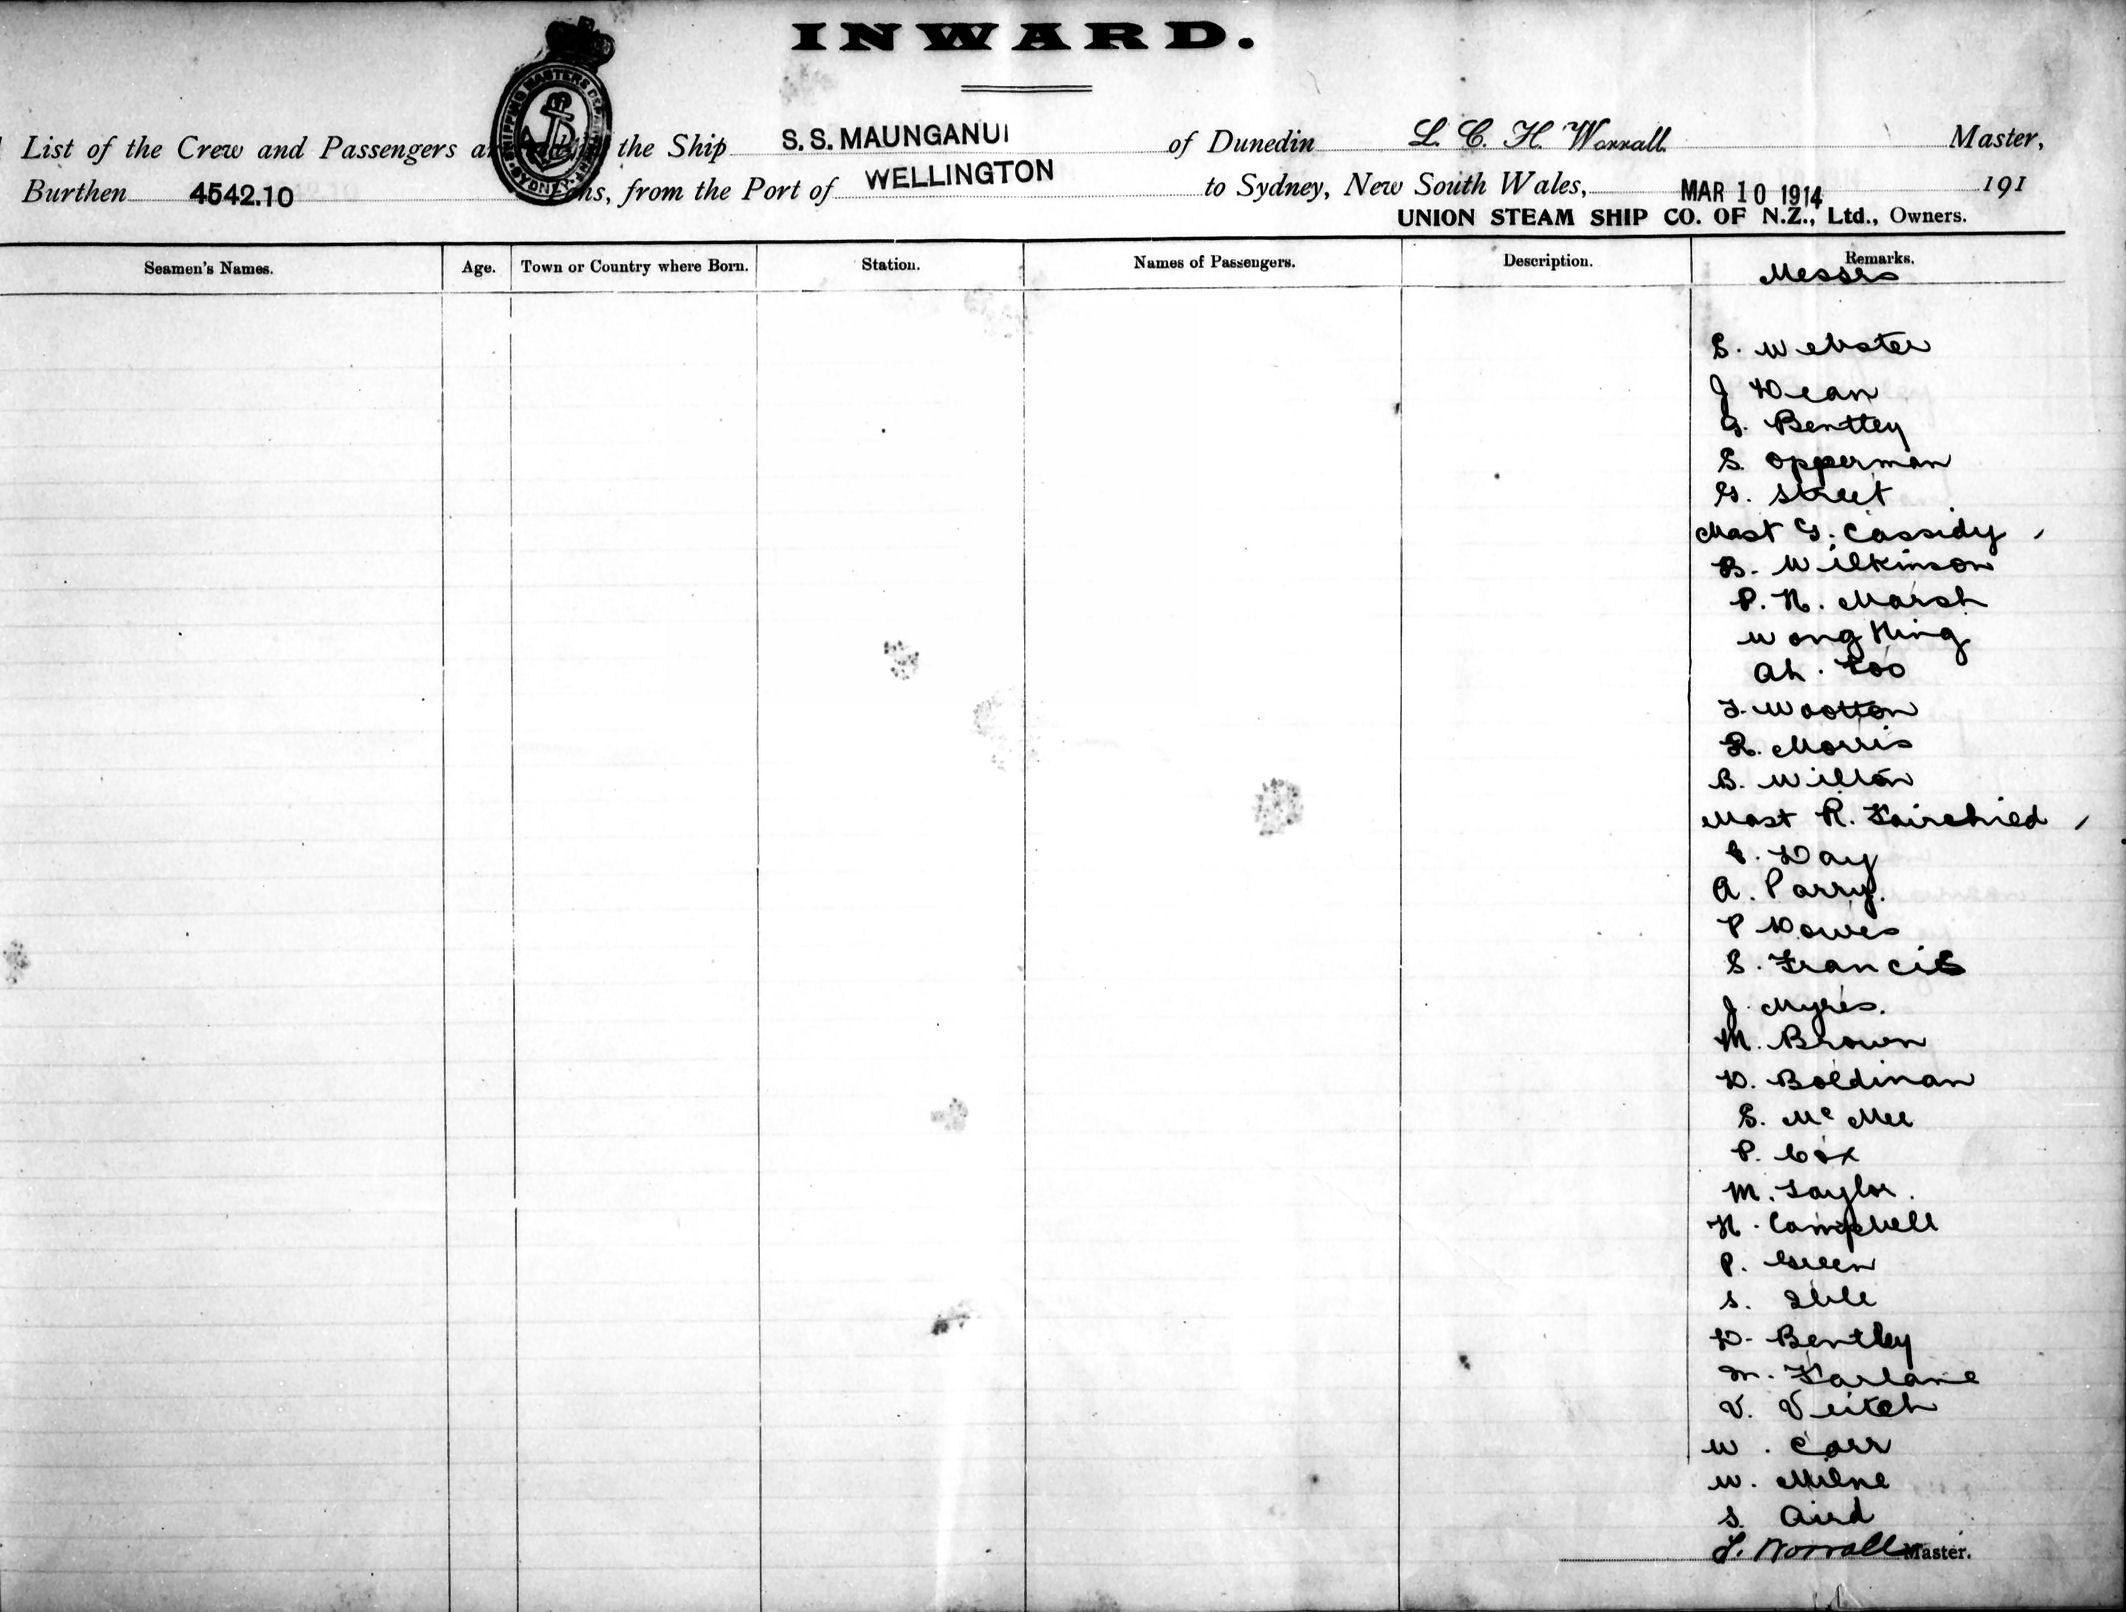 INWARD.
List of the Crew and Passengers the Ship S.S. MAUNGANUI of Dunedin L. C. H. Worrall Master,
Burthen 4542.10 Tons, from the Port of WELLINGTON to Sydney, New South Wales, MAR 10 1914 191
UNION STEAM SHIP CO. OF N.Z., Ltd., Owners.
SHIPPING MASTERS
SYDNEY
Seamen's Names. Age. Town or Country where Born. Station. Names of Passengers. Description. Remarks.
Messrs
S. Webster
J Dean
G. Bentley
S. Opperman
G. Street
Mast G. Cassidy
B. Wilkinson
P. H. Marsh
Wong Hing
Ah. Loo
T. Wootton
R. Morris
B. Willon
Mast R. Fairchild
C. Day
A. Parry.
P Dawes
S. Francis
J. Myres.
M. Brown
D. Boldman
S. Mc Mee
P. Cox
M. Taylor.
H. Campbell
P. Green
S. Ible
D. Bentley
M. Farlane
V. Veitch
W. Carr
W. Milne
S. Aird
L. Worrall Master.